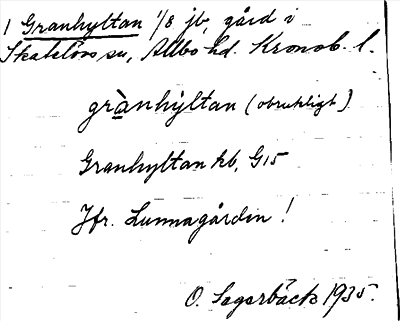 1 Granhyltan 1/8 jb, gård i
Skatelövs sn, Allbo hd. Kronob. l.
grànhỳltan (obrukligt)
Granhyltan hb, G15
Jfr. Lunnagården!
O. Lagerbäck 1935.